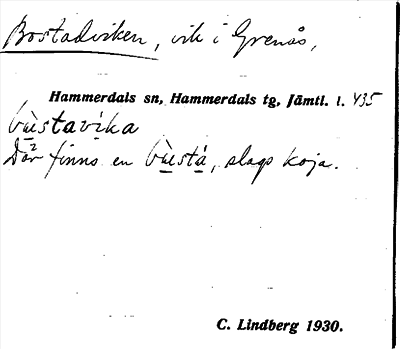 Bostadviken, vik i Grenås,
Hammerdals sn, Hammerdals tg, Jämtl. l. 435
bùstavika
Där finns en bùstá, slags koja.
C. Lindberg 1930.